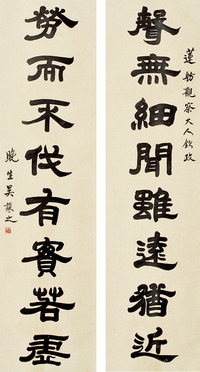 蓮舫觀察大人政
聲無細聞雖遠猶近
勞而不伐有實若虛
晚生吳讓之